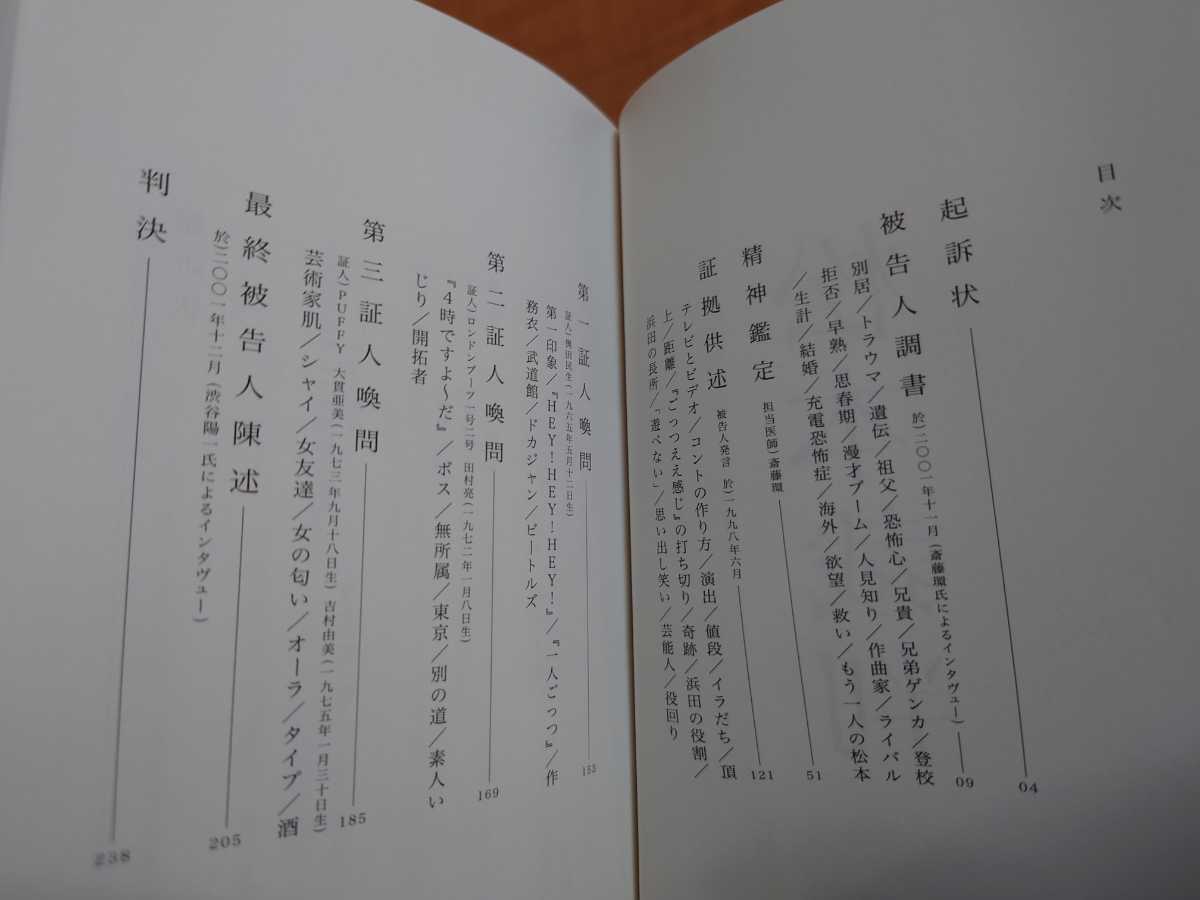 目次
起訴状 04
被告人調書 於)二〇〇一年十一月(斎藤環氏によるインタヴュー) 09
別居/トラウマ/遺伝/祖父/恐怖心/兄貴/兄弟ゲンカ/登校
拒否/早熟/思春期/漫才ブーム/人見知り/作曲家/ライバル
/生計/結婚/充電恐怖症/海外/欲望/救い/もう一人の松本
精神鑑定 担当医師)斎藤環 51
証拠供述 被告人発言 於)一九九八年六月 121
テレビとビデオ/コントの作り方/演出/値段/イラだち/頂
上/距離/『ごっつええ感じ』の打ち切り/奇跡/浜田の役割/
浜田の長所/「遊べない」/思い出し笑い/芸能人/役回り
第一証人喚問 153
証人)奥田民生(一九六五年五月十二日生)
第一印象/『HEY!HEY!HEY!』/『一人ごっつ』/作
務衣/武道館/ドカジャン/ビートルズ
第二証人喚問 169
証人)ロンドンブーツ一号二号 田村亮(一九七二年一月八日生)
『4時ですよ〜だ』/ボス/無所属/東京/別の道/素人い
じり/開拓者
第三証人喚問 185
証人)PUFFY 大貫亜美(一九七三年九月十八日生) 吉村由美(一九七五年一月三十日生)
芸術家肌/シャイ/女友達/女の匂い/オーラ/タイプ/酒
最終被告人陳述 205
於)二〇〇一年十二月(渋谷陽一氏によるインタヴュー)
判決 238